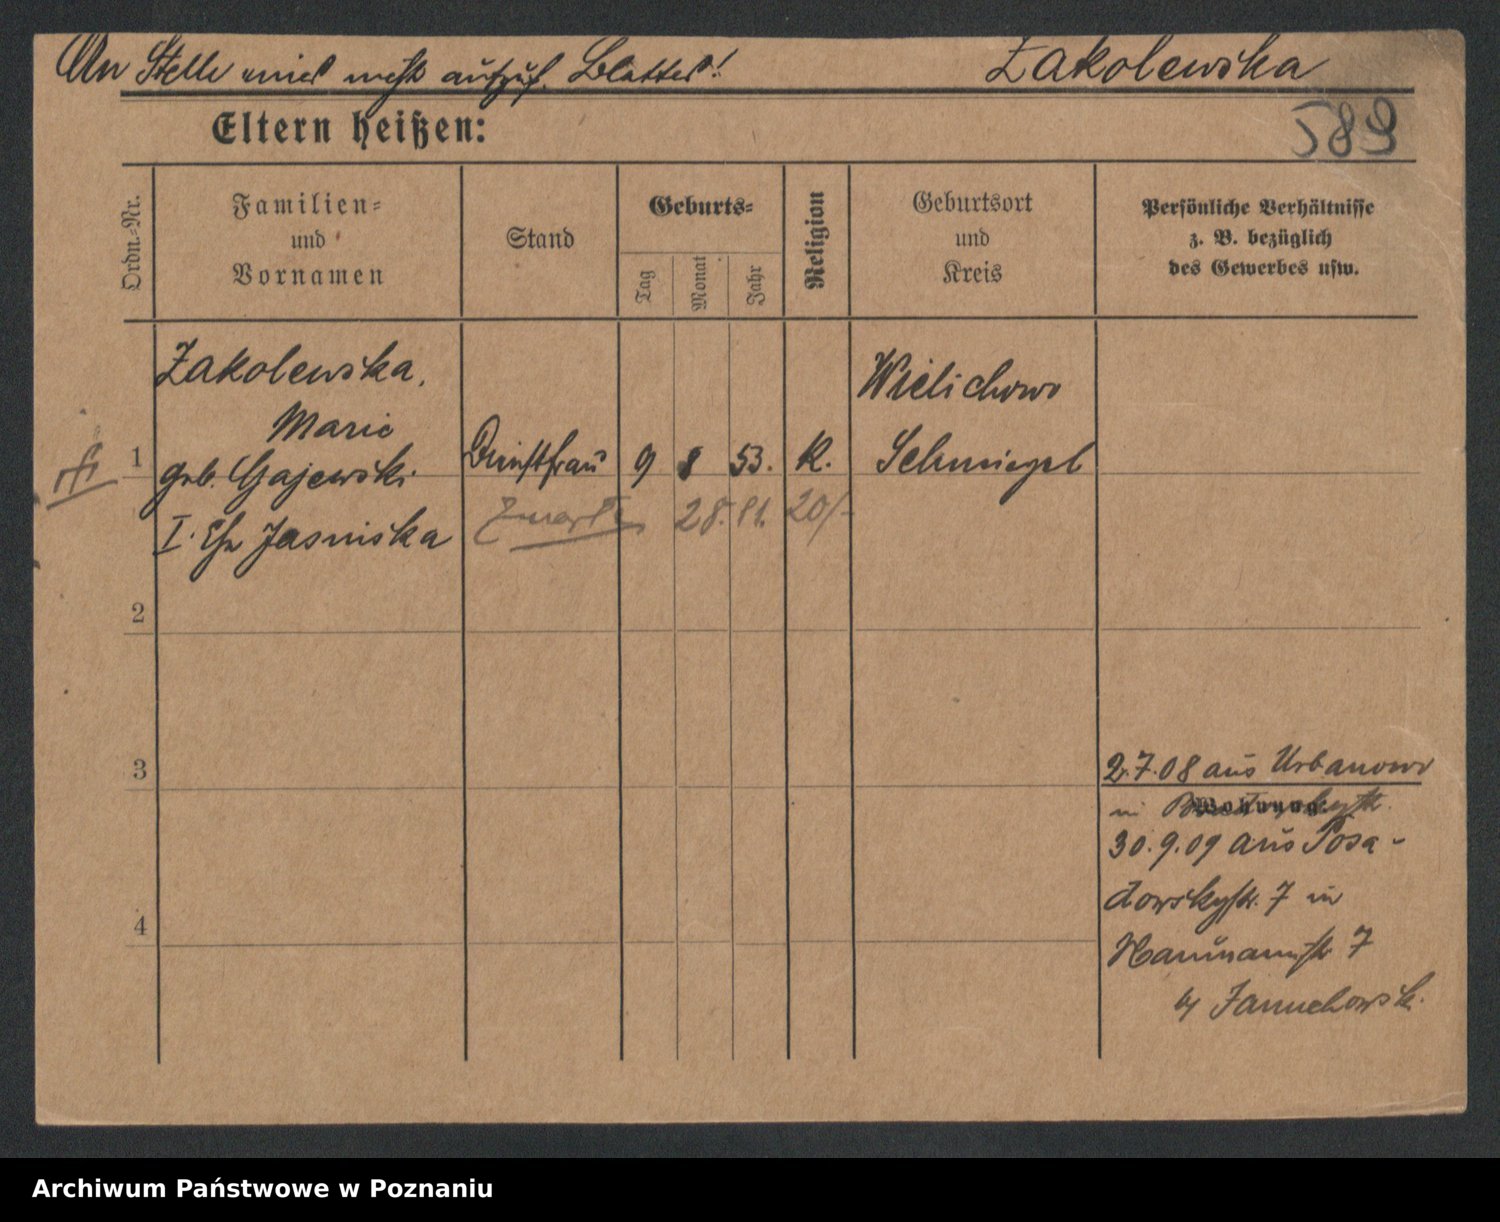 An Stelle eines nicht aufzuf. Blattes! Zakolewska
589
Eltern heißen:
Ordn.-Nr.
Familien=
und
Vornamen
Stand
Geburts=
Tag
Monat
Jahr
Religion
Geburtsort
und
Kreis
Persönliche Verhältnisse
z. B. bezüglich
des Gewerbes usw.
Zakolewska,
Marie
1 geb. Gajewski Dienstfrau 9 8 53. K.
I. Ehe Jasniska
Wielichowo
Schmiegel
Zmarła 28. 11. 20
2
3
4
2.7.08 aus Urbanowo
Wohnung:
in
30.9.09 aus Posa-
dowskystr. 7 in
Naumannstr 7
by Januchowsk.
Archiwum Państwowe w Poznaniu